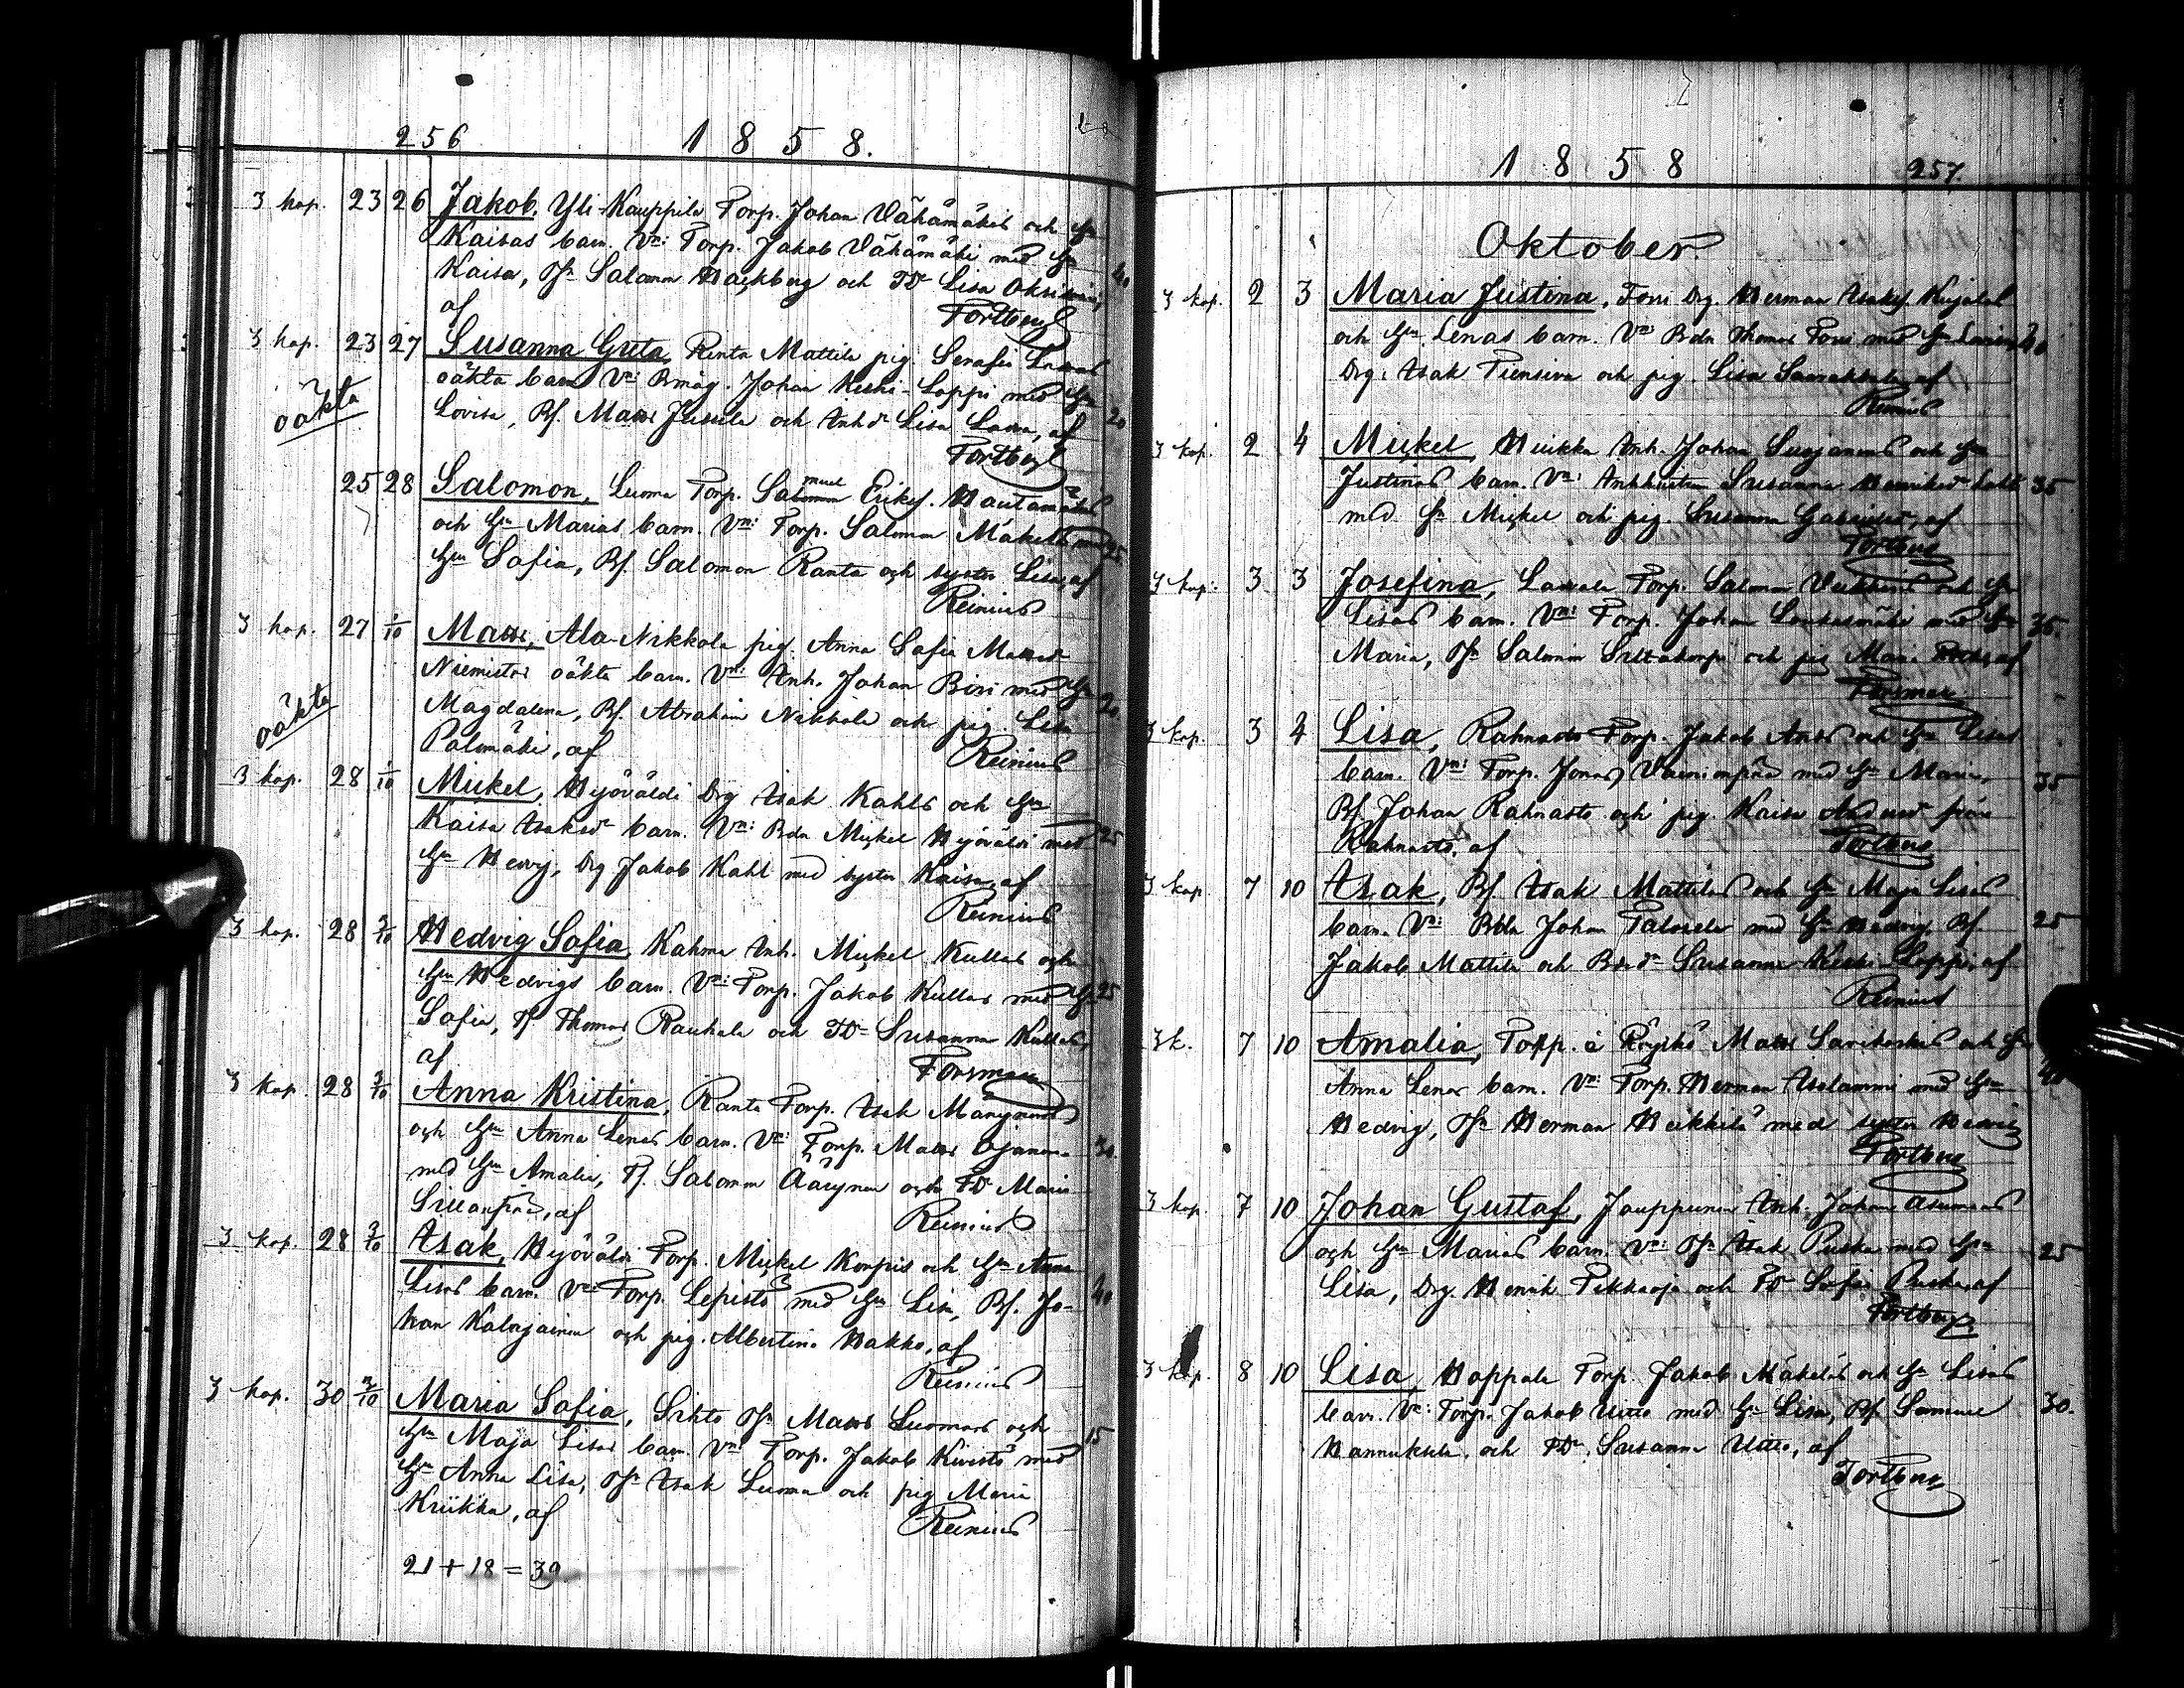 256 1858.
3 kop. 23 26 Jakob, Yli-Kauppila Torp. Johan Vähämäkis och Hu
Kaisas barn. Vn: Torp. Jakob Vähämäki med Hu 40
Kaisa, Ds Salomon Hackberg och TDr Lisa
af Fortberg
3 kop. 23 27 Susanna Greta, Renta Mattila pig. Serafia
oäkta oäkta barn Vn: Bmåg. Johan Keski-Loppi med Hu
Lovisa, Bs. Matts Jussila och Inhdr Lisa, af 20
Fortberg
25 28 Salomon, Luoma Torp. Samuel Eriks. Hautamäkis
och Hu Marias barn. Vn: Torp. Salomon Mäkelä med 25
Hu Sofia, Bs. Salomon Ranta och syster Lisa, af
Reinius
3 kop. 27 1/10 Matts, Ala-Nikkola pig. Anna Sofia Mattsdr
Niemistös oäkta barn. Vn: Inh. Johan med Hu 20
oäkta Magdalena, Bs. Abraham Nikkola och pig. Lisa
Palomäki, af Reinius
3 kop. 28 1/10 Mickel, Hyöväldi Drg Isak Kahls och Hu
Kaisa Isaksdr barn. Vn: Bdn Mickel Hyöväldi med 25
Hu Hedvig, Drg Jakob Kahl med syster Kaisa, af
Reinius
3 kop. 28 2/10 Hedvig Sofia, Kahma Inh. Mickel Kullas och
Hu Hedvigs barn. Vn: Torp. Jakob Kullas med Hu 25
Sofia, Ts Thomas Rauhala och TDr Susanna Kullas,
af Forsman
3 kop. 28 3/10 Anna Kristina, Ranta Torp. Isak Mänynens
och Hu Anna Lenas barn. Vn: Torp. Matts Ojanen 30
med Hu Amalia, Ts. Salomon och TDr Maria
Sillanpää, af Reinius
3 kop. 28 3/10 Isak, Hyöväldi Torp. Mickel Korpis och Hu Anna
Lisas barn. Vn: Torp. Lepistö med Hu Lisa, Bs. Jo- 40
han och pig. Albertina Hakko, af
Reinius
3 kop. 30 3/10 Maria Sofia, Sihto Ds Matts Luomas och
Hu Maja Lisas barn. Vn: Torp. Jakob Kivistö med 15
Hu Anna Lisa, Ds Isak Luoma och pig Maria
Kriikka, af Reinius
21 + 18 = 39
1858 257.
Oktober.
3 kop. 2 3 Maria Justina, Torri Drg. Herman Isaks. Kujalas
och Hu Lenas barn. Vn: Bdn Thomas Torri med Hu Lovisa,
Drg. Isak och pig. Lisa af
Reinius
3 kop. 2 4 Mickel, Heikka Inh. Johan Susjanens och Hu
Justinas barn. Vn: Inhhustru Susanna Henriksdr 35
med Ds Mickel och pig. Susanna, af
Fortberg
3 kop. 3 3 Josefina, Lassala Torp. Salomon och Hu
Lisas barn. Vn: Torp. Johan Lonkasmäki med Hu 35.
Maria, Ds Salomon och pig Maria af
Forsman
3 kop. 3 4 Lisa, Rahnasto Torp. Jakob och Hu Lisas
barn. Vn: Torp. Jonas Vainionpää med Hu Maria, 35
Bs Johan Rahnasto och pig. Kaisa från
Rahnasto, af Fortberg
3 kop. 7 10 Isak, Bs. Isak Mattilas och Hu Maja Lisas
barn. Vn: Bdn Johan Talosela med Hu Hedvig, Bs. 25
Jakob Mattila och Bdr Susanna Keski-Loppi, af
Reinius
3 k. 7 10 Amalia, Torp. å Röyskö Matts Sarikoskis och Hu
Anna Lenas barn. Vn: Torp. Herman Asolammi med Hu 40
Hedvig, Ds Herman Heikkilä med syster Hedvig
Fortberg
3 kop. 7 10 Johan Gustaf, Jouppunen Inh. Johan Asumans
och Hu Marias barn. Vn: Ds Isak Puska med Hu 25
Lisa, Drg. Henrik Pikkaoja och TDr Sofia Puska, af
Fortberg
3 kop. 8 10 Lisa, Hoppala Torp. Jakob Mäkeläs och Hu Lisas
barn. Vn: Torp. Jakob Uitto med Hu Lisa, Bs Samuel 30.
Hannuksela, och TDr Susanna Uitto, af
Fortberg